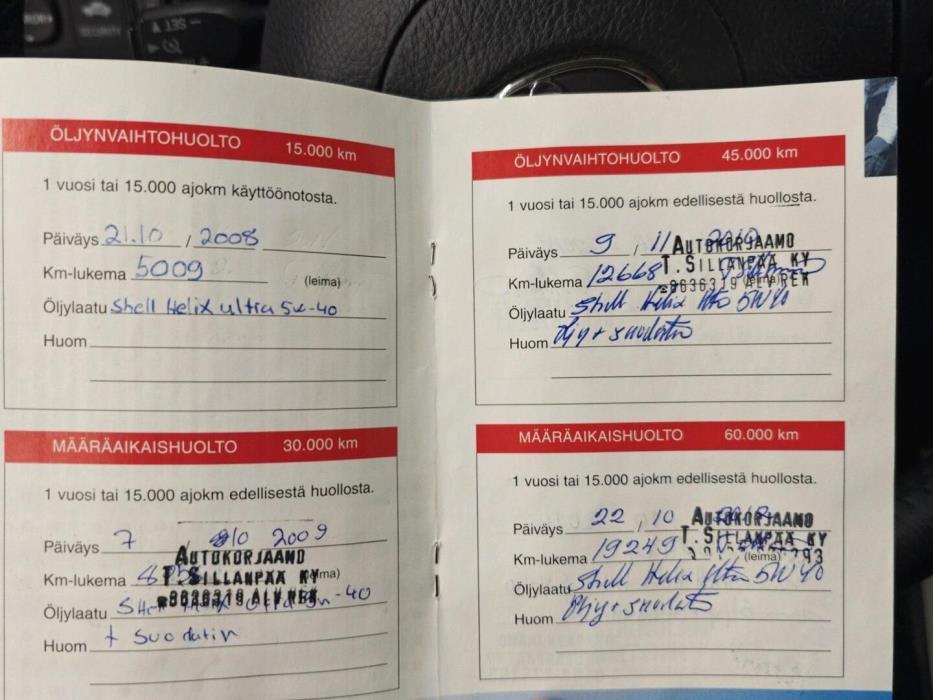 SET
SECURITY
ÖLJYNVAIHTOHUOLTO 15.000 km
1 vuosi tai 15.000 ajokm käyttöönotosta.
Päiväys 21.10 / 2008
Km-lukema 5009
(leima)
Öljylaatu Shell Helix ultra 5w-40
Huom
MÄÄRÄAIKAISHUOLTO 30.000 km
1 vuosi tai 15.000 ajokm edellisestä huollosta.
Päiväys 7 / 10 2009
AUTOKORJAAMO
Km-lukema
T. SILLANPÄÄ KY
(leima)
8636319 ALV REK
Öljylaatu 5w-40
Huom + Suodatin
ÖLJYNVAIHTOHUOLTO 45.000 km
1 vuosi tai 15.000 ajokm edellisestä huollosta.
Päiväys 9 / 11 2010
AUTOKORJAAMO
T. SILLANPÄÄ KY
Km-lukema 12668
(leima)
8636319 ALV REK
Öljylaatu Shell Helix 5W40
Huom Öljy + suodatin
MÄÄRÄAIKAISHUOLTO 60.000 km
1 vuosi tai 15.000 ajokm edellisestä huollosta.
Päiväys 22 / 10
AUTOKORJAAMO
T. SILLANPÄÄ KY
Km-lukema 19249
(leima)
Öljylaatu Shell Helix Ultra 5W40
Huom Öljy + suodatin